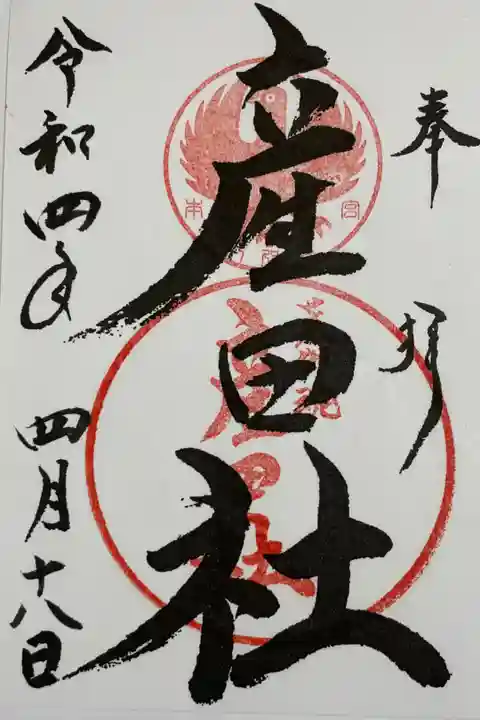 奉拝
産田社
令和四年
四月十八日
本宮